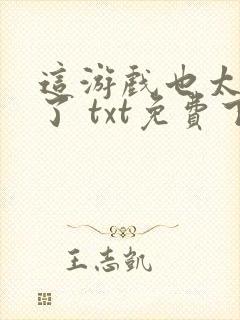 這游戲也太
了 txt免費下
王志凱